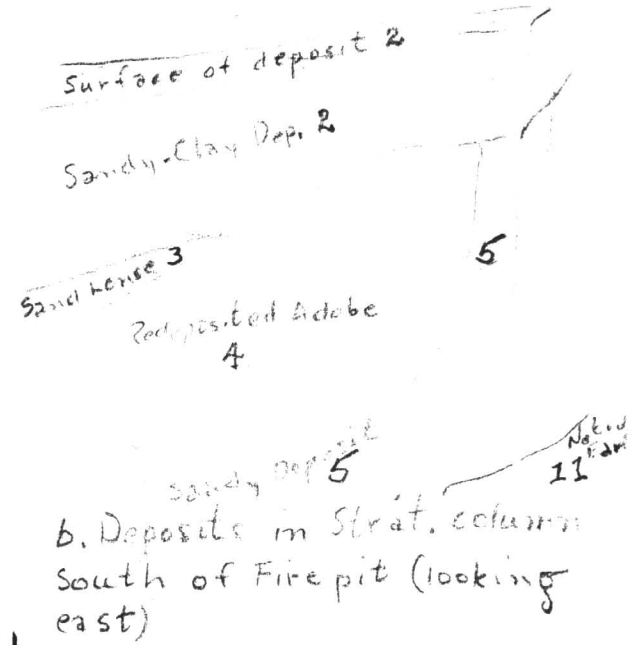 Surface of deposit 2
Sandy-Clay Dep. 2
5
Sand Lense 3
Redeposited Adobe
4
Sandy Deposit
5
11
b. Deposits in Strat. column
South of Fire pit (looking
east)